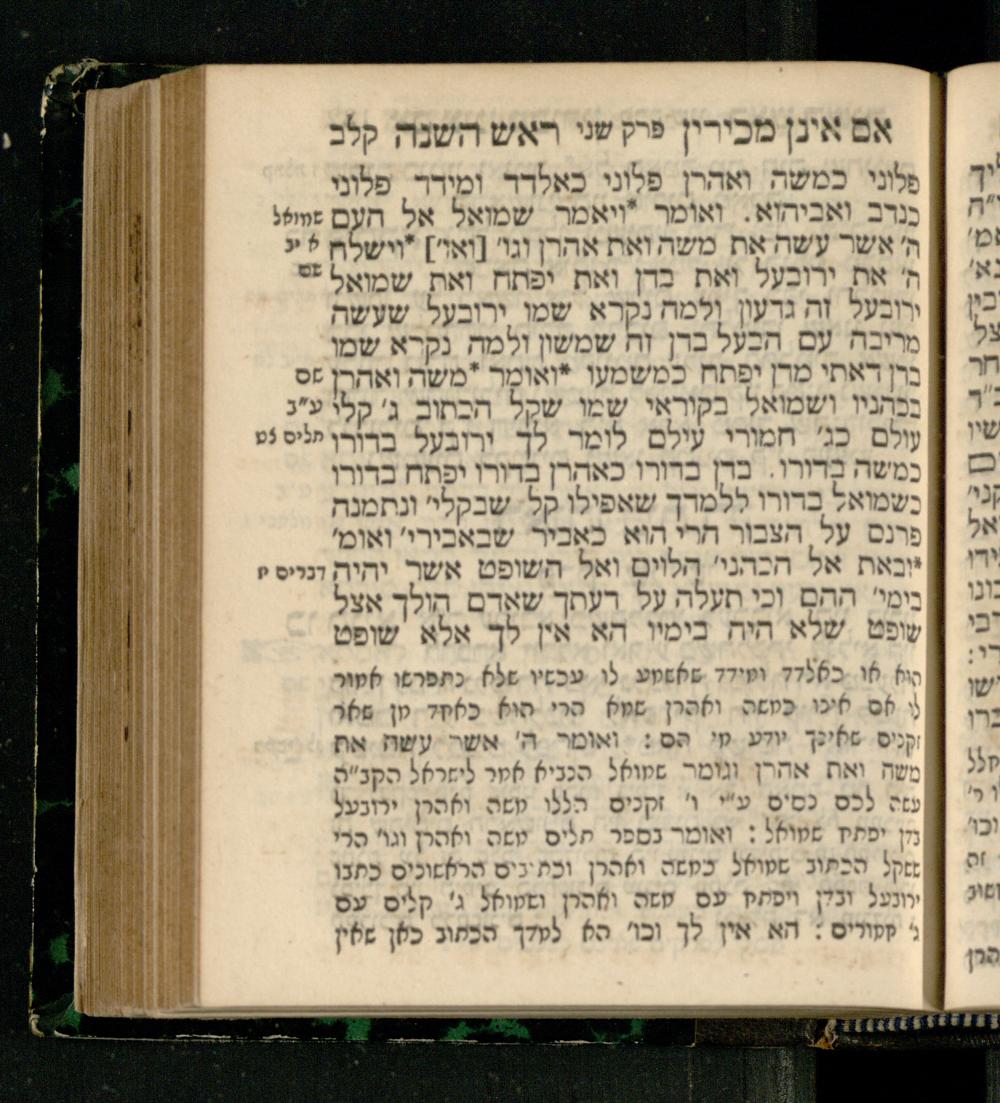 אם אינן מכירין פרק שני ראש השנה קלב
פלוני כמשה ואהרן פלוני כאלדד ומידד פלוני
כנדב ואביהוא. ואומר *ויאמר שמואל אל העם שמואל
ה' אשר עשה את משה ואת אהרן וגו' [ואו'] *וישלח א יב
ה' את ירובעל ואת בדן ואת יפתח ואת שמואל שם
ירובעל זה גדעון ולמה נקרא שמו ירובעל שעשה
מריבה עם הבעל בדן זה שמשון ולמה נקרא שמו
בדן דאתי מדן יפתח כמשמעו *ואומר *משה ואהרן שם
בכהניו ושמואל בקוראי שמו שקל הכתוב ג' קלי ע"ב
עולם כג' חמורי עולם לומר לך ירובעל בדורו תלים צט
כמשה בדורו. בדן בדורו כאהרן בדורו יפתח בדורו
כשמואל בדורו ללמדך שאפילו קל שבקלי' ונתמנה
פרנס על הצבור הרי הוא כאביר שבאבירי' ואומ'
*ובאת אל הכהני' הלוים ואל השופט אשר יהיה דברים יז
בימי' ההם וכי תעלה על דעתך שאדם הולך אצל
שופט שלא היה בימיו הא אין לך אלא שופט
הוא או כאלדד ומידד שאשמע לו עכשיו שלא נתפרשו אמור
לו אם אינו כמשה ואהרן שמא הרי הוא כאחד מן שאר
זקנים שאינך יודע מי הם: ואומר ה' אשר עשה את
משה ואת אהרן וגומר שמואל הנביא אמר לישראל הקב"ה
עשה לכם נסים ע"י ו' זקנים הללו משה ואהרן ירובעל
בדן יפתח שמואל: ואומר בספר תלים משה ואהרן וגו' הרי
ששקל הכתוב שמואל כמשה ואהרן וכתובים הראשונים כתבו
ירובעל ובדן ויפתח עם משה ואהרן ושמואל ג' קלים עם
ג' חמורים: הא אין לך וכו' הא למדך הכתוב כאן שאין